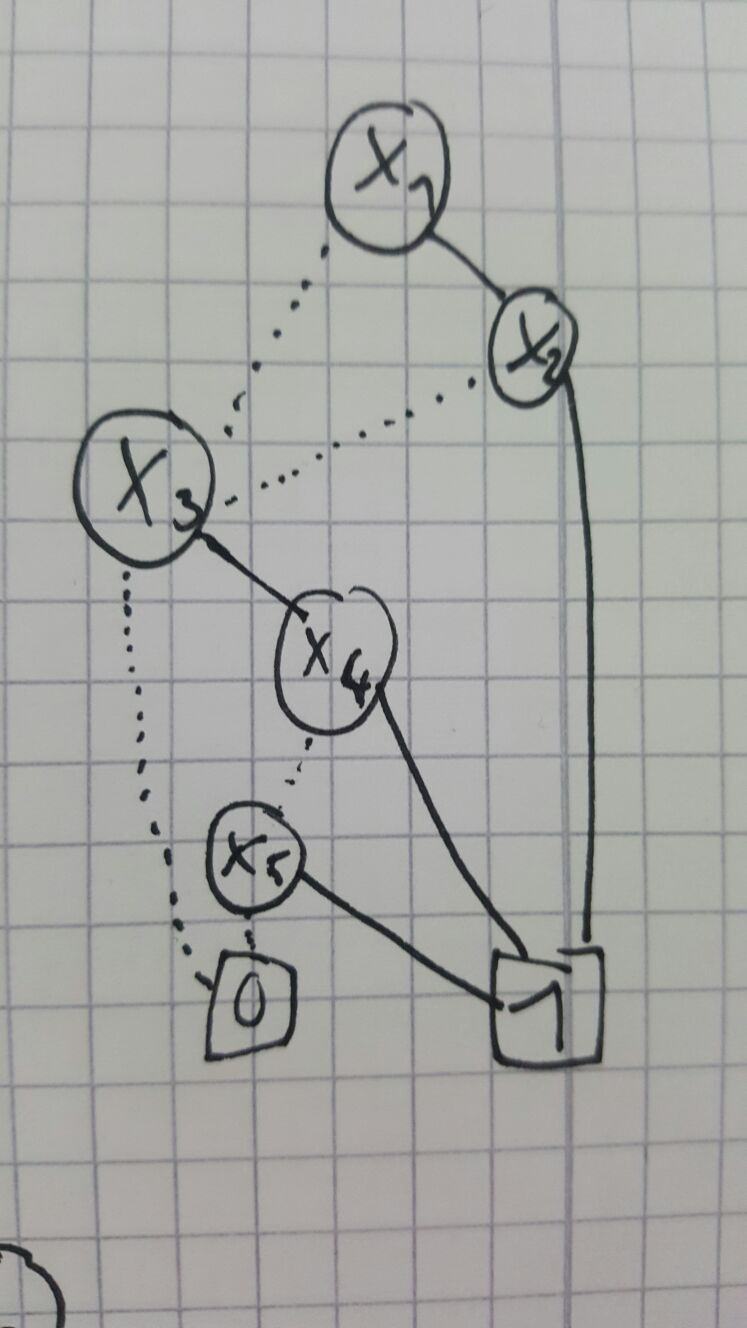 X1
X2
X3
X4
X5
0
1